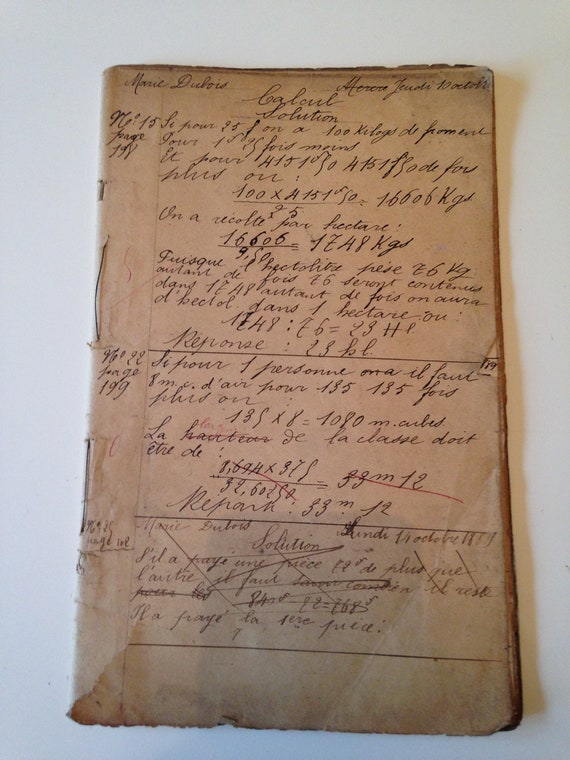 Marie Dubois Jeudi 10 octobre
Calcul
Solution
No. 15
page
198
Si pour 25f on a 100 Kilogs de froment
Pour 1f 25 fois moins
Et pour 4151f50 4151f50 de fois
plus ou :
100 x 4151f50 = 16606 Kgs
25
On a récolté par hectare :
16606 = 1748 Kgs
9,50
Puisque 1 hectolitre pèse 76 Kg
autant de fois 76 seront contenus
dans 1748 autant de fois on aura
d hectol. dans 1 hectare ou :
1748 : 76 = 23 Hl
Réponse : 23 hl.
No. 22
page
199
Si pour 1 personne on a il faut
8 m.c. d'air pour 135 135 fois
plus ou :
135 x 8 = 1080 m. cubes
La hauteur de la classe doit
être de :
8,694 x 375 = 33m 12
32,60250
33m 12
Marie Dubois Lundi 14 octobre 1889
Solution
S'il a payé une pièce 72f de plus que
l'autre il faut il reste
84 72 = 768f
Il a payé la 1ère pièce :